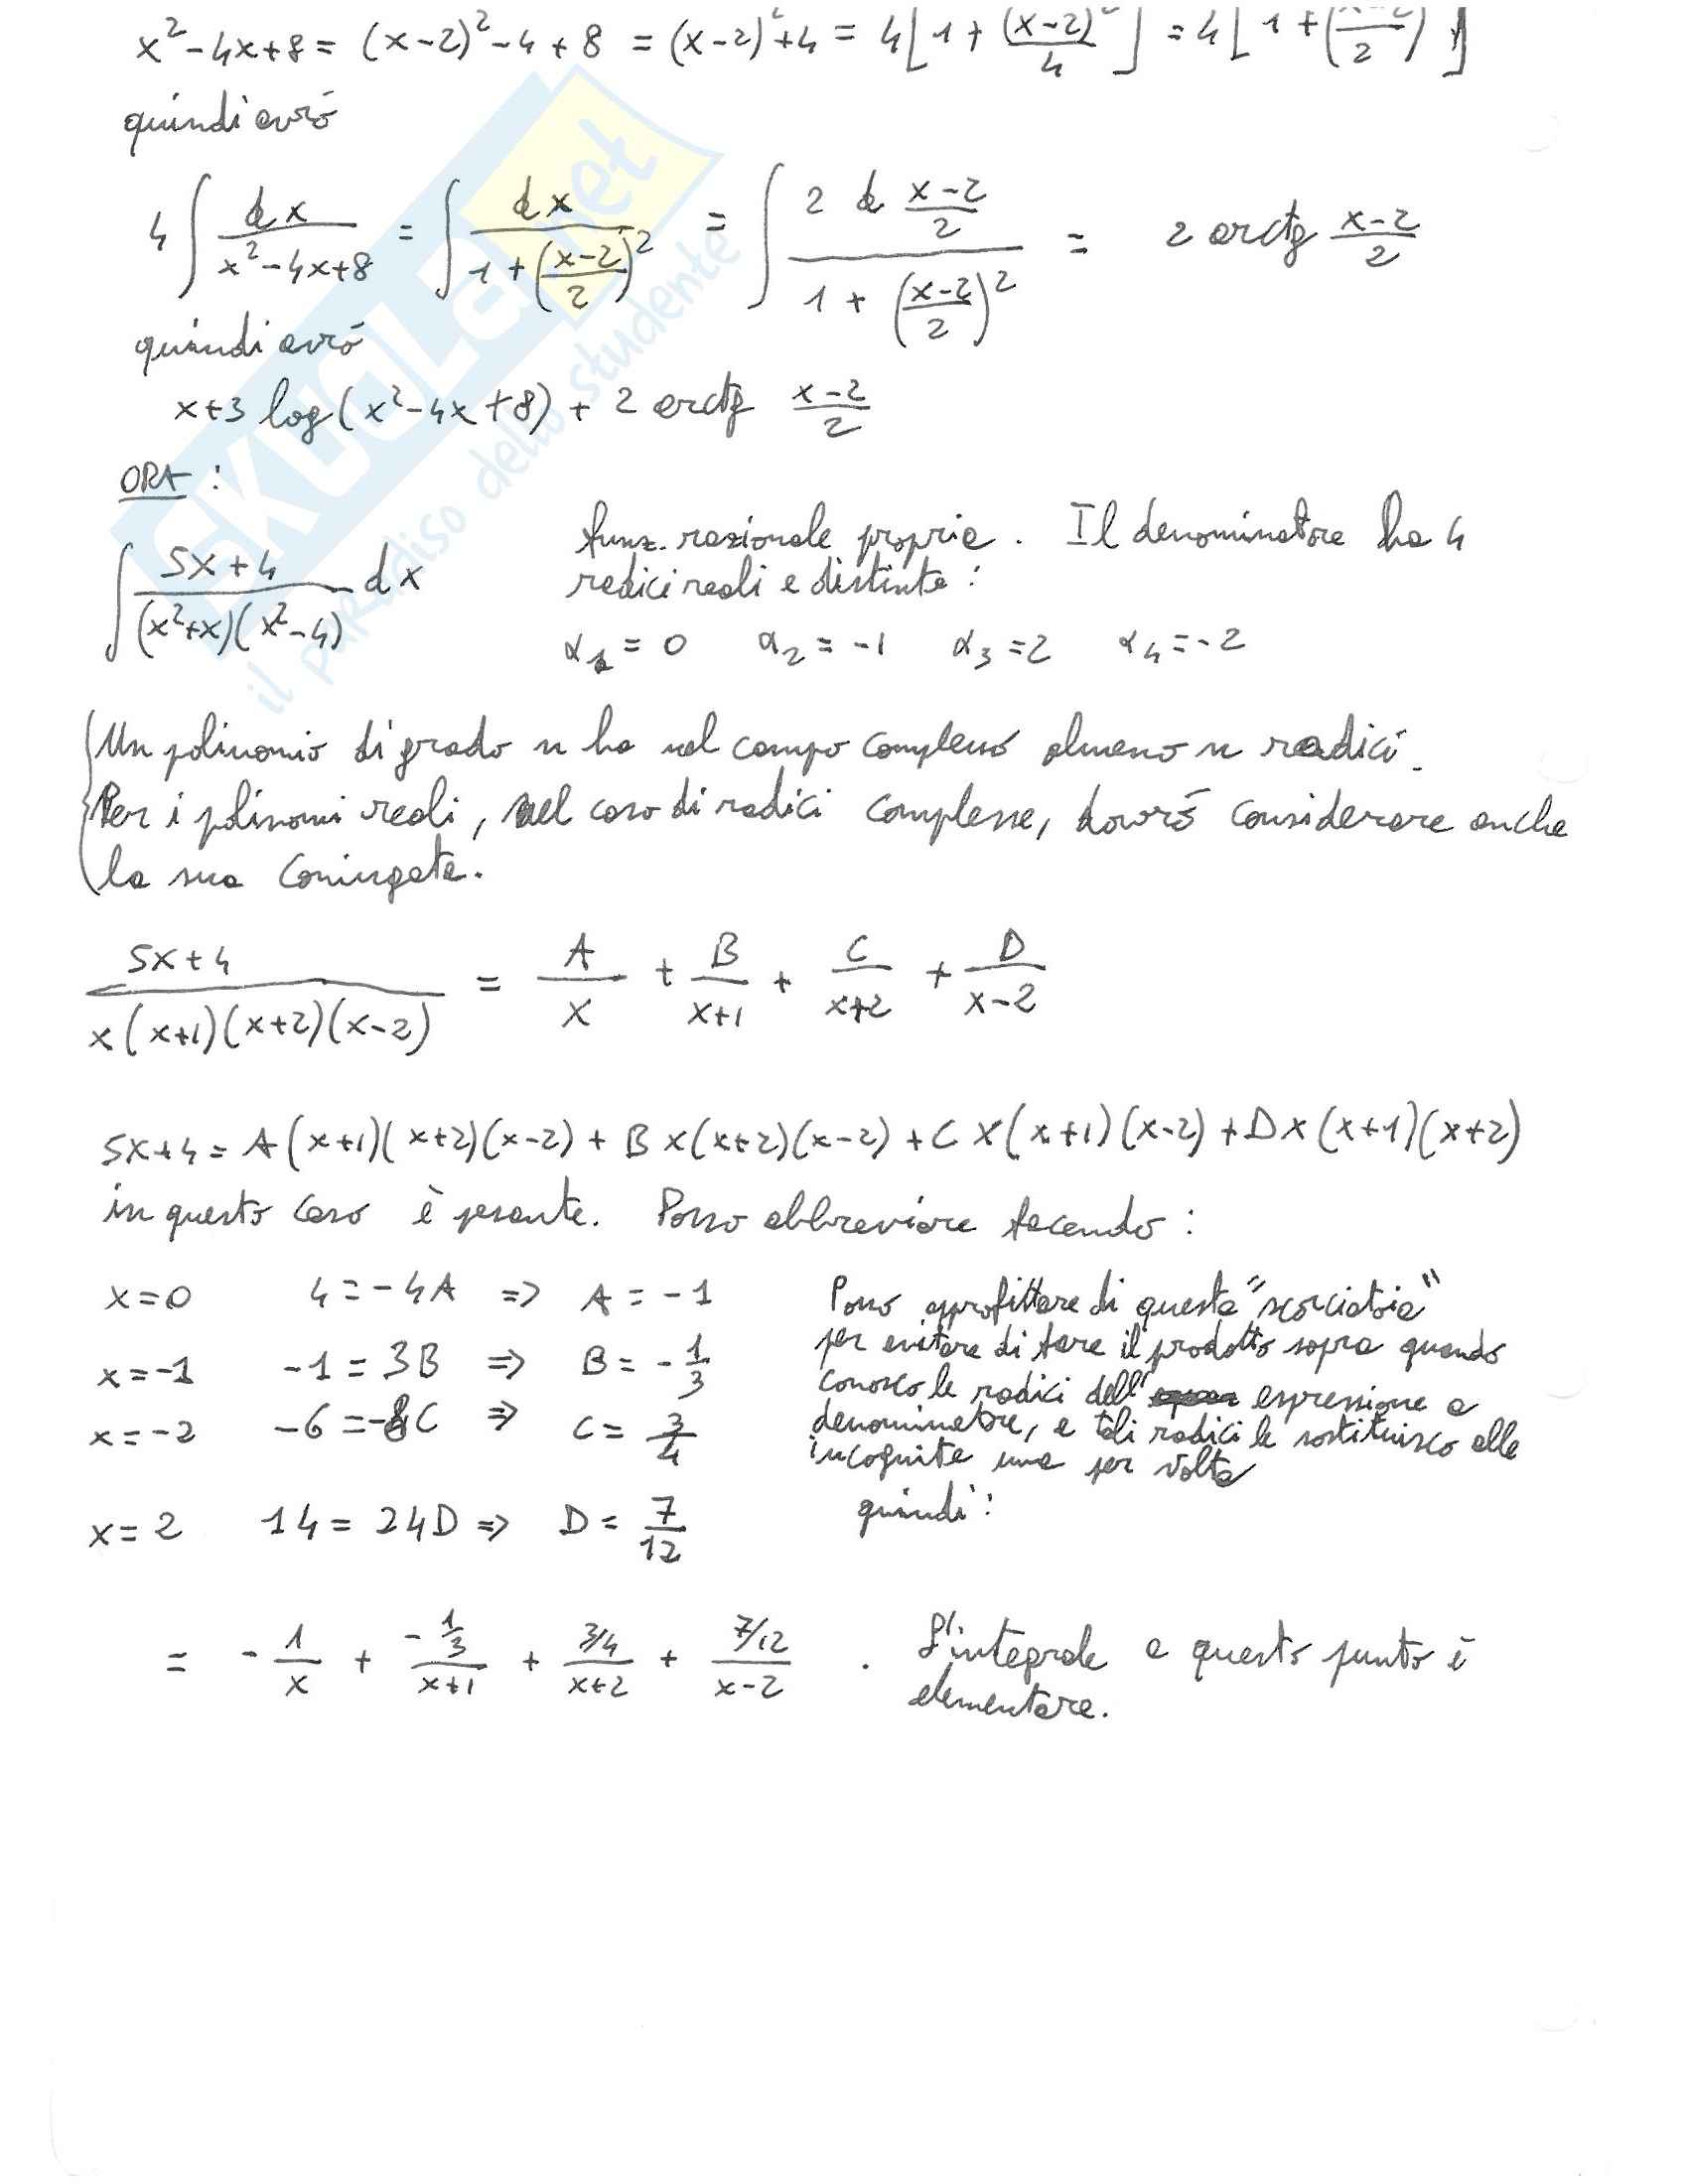 x² - 4x + 8 = (x-2)² - 4 + 8 = (x-2)² + 4 = 4[1 + (x-2)²/4] = 4[1 + (x-2/2)²]
quindi avrò
4 ∫ dx/(x² - 4x + 8) = ∫ dx/(1 + (x-2/2)²) = ∫ 2 d (x-2)/2 / (1 + (x-2/2)²) = 2 arctg (x-2)/2
quindi avrò
x + 3 log(x² - 4x + 8) + 2 arctg (x-2)/2
ORA :
∫ (5x+4)/((x²+x)(x²-4)) dx
funz. razionale propria. Il denominatore ha 4
radici reali e distinte:
α₁ = 0 α₂ = -1 α₃ = 2 α₄ = -2
Un polinomio di grado n ha nel campo complesso almeno n radici.
Per i polinomi reali, nel caso di radici complesse, dovrò considerare anche
la sua coniugata.
(5x+4)/(x(x+1)(x+2)(x-2)) = A/x + B/(x+1) + C/(x+2) + D/(x-2)
5x+4 = A(x+1)(x+2)(x-2) + Bx(x+2)(x-2) + Cx(x+1)(x-2) + Dx(x+1)(x+2)
in questo caso è pesante. Posso abbreviare facendo:
x=0 4 = -4A ⇒ A = -1
x=-1 -1 = 3B ⇒ B = -1/3
x=-2 -6 = -8C ⇒ C = 3/4
x=2 14 = 24D ⇒ D = 7/12
Posso approfittare di questa "scorciatoia"
per evitare di fare il prodotto sopra quando
conosco le radici dell' espressione a
denominatore, e tali radici le sostituisco alle
incognite una per volta
quindi:
= -1/x + (-1/3)/(x+1) + (3/4)/(x+2) + (7/12)/(x-2) . L'integrale a questo punto è
elementare.
SKUOLA.net
il paradiso dello studente